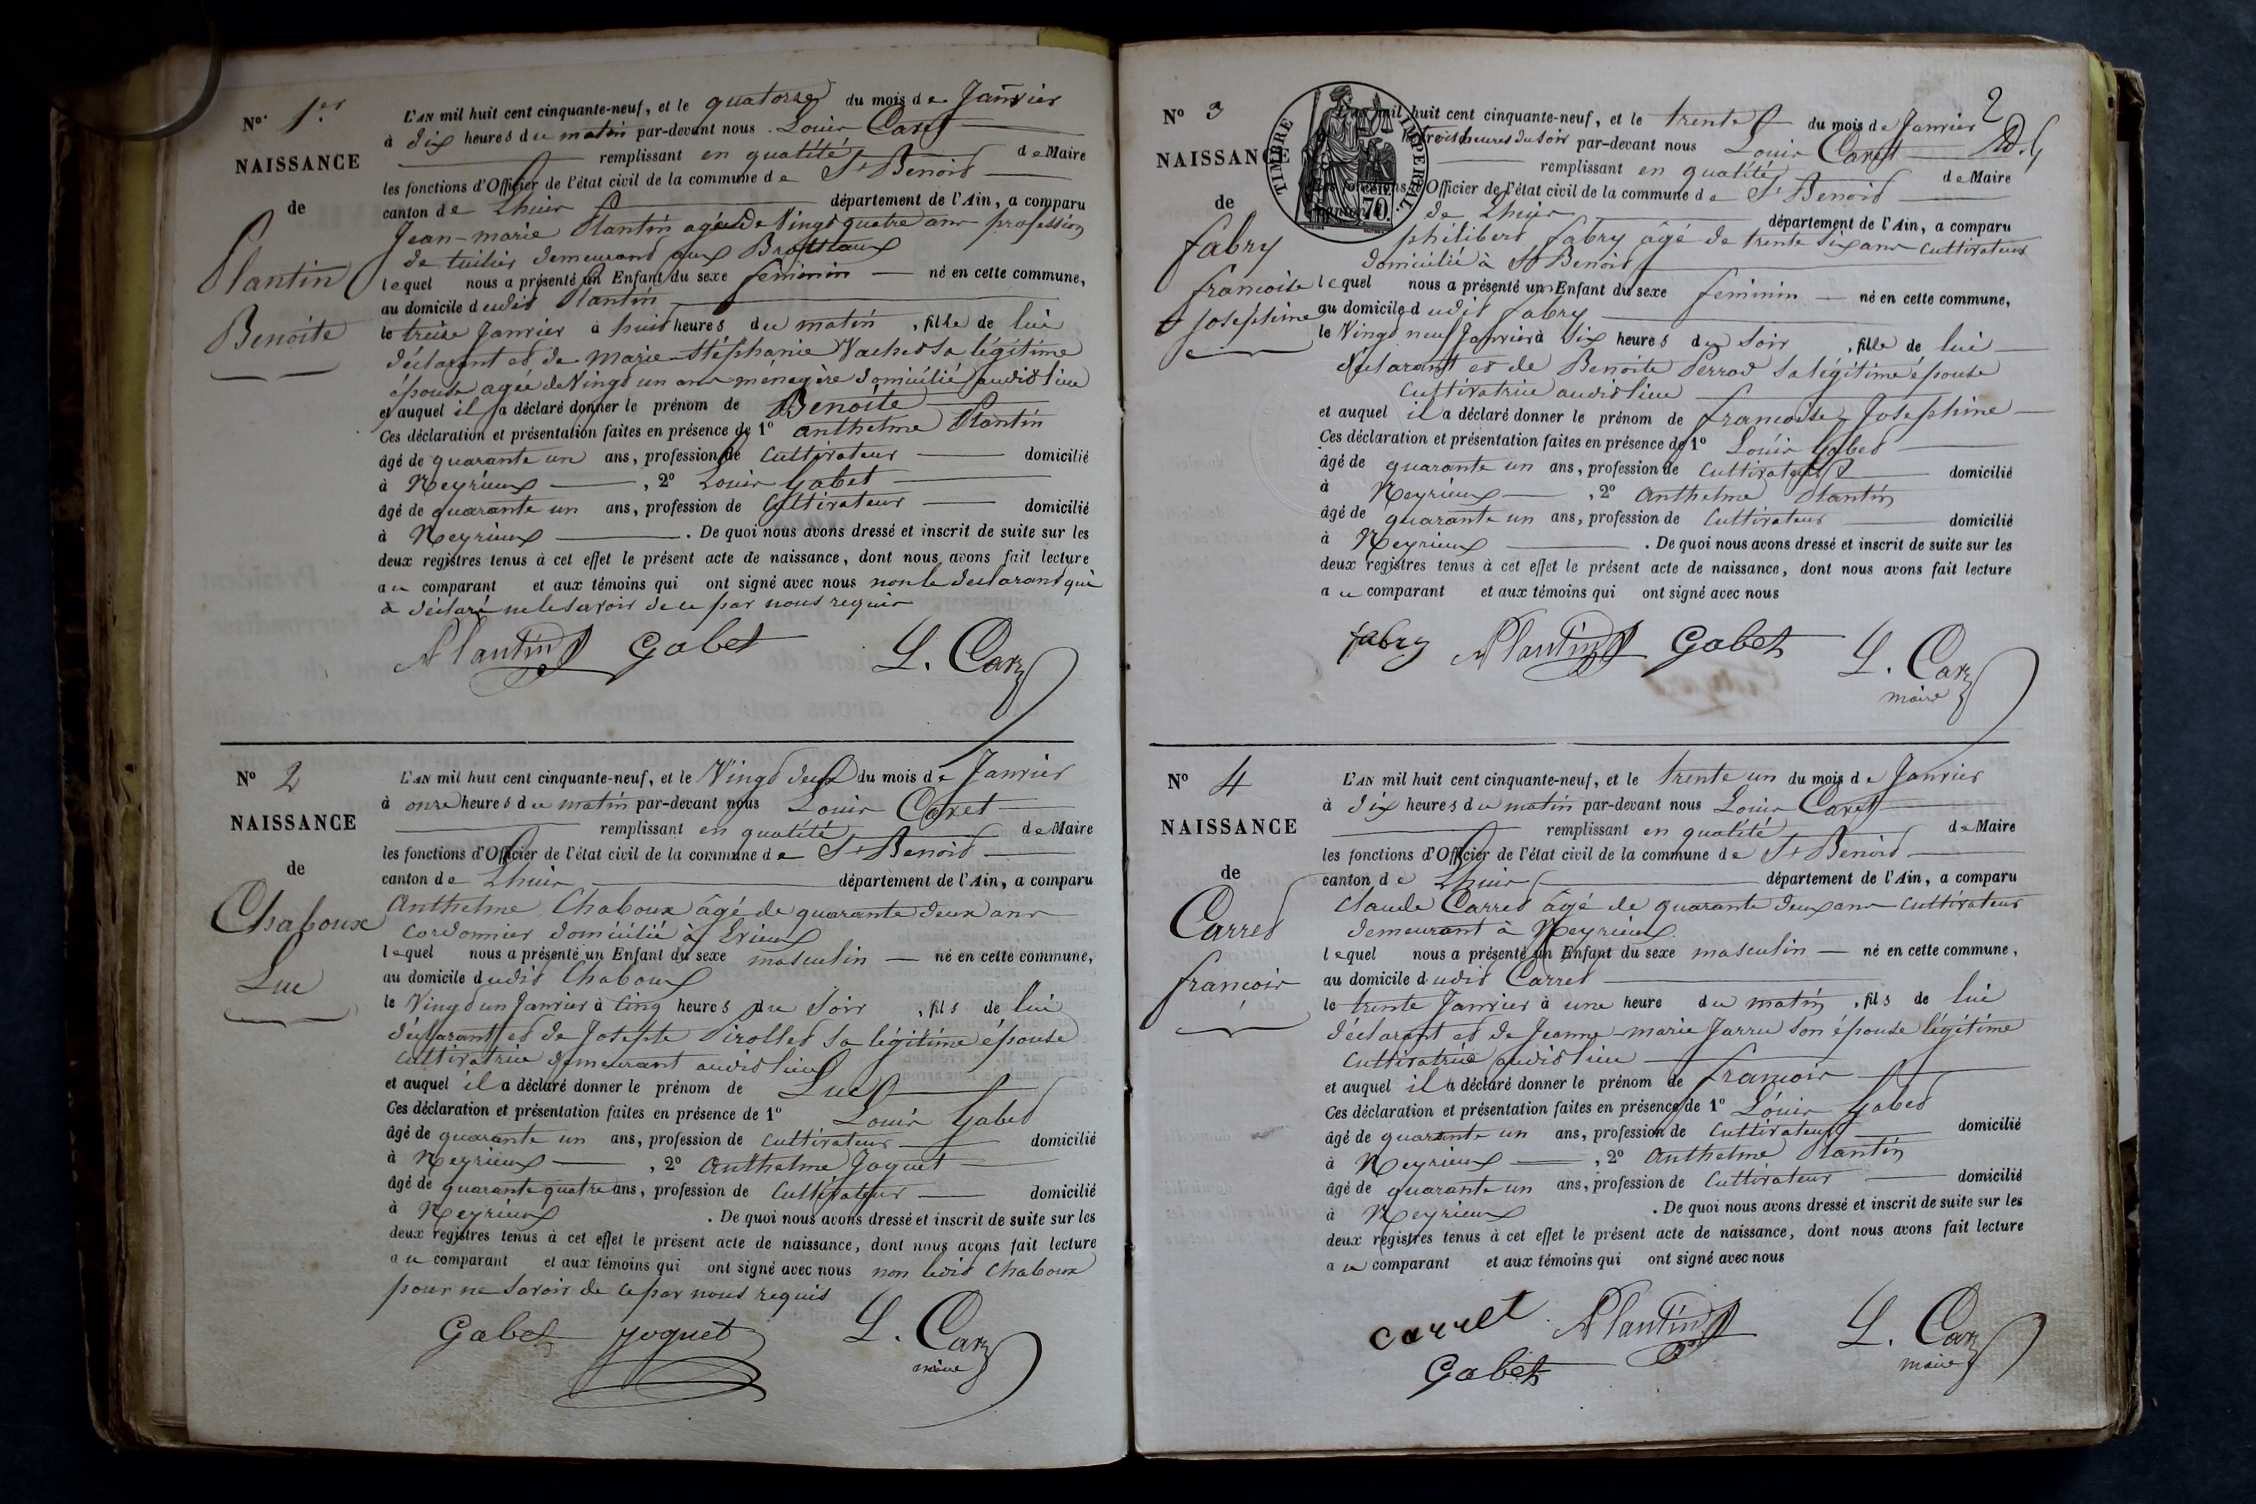 No. 1.er
NAISSANCE
de
Plantin
Benoite
L'AN mil huit cent cinquante-neuf, et le quatorze du mois de Janvier
à dix heures du matin par-devant nous Louis Carret
remplissant en qualité de Maire
les fonctions d'Officier de l'état civil de la commune de St Benoit
canton de Lhuis département de l'Ain, a comparu
Jean-marie Plantin agé de Vingt quatre ans profession
de tuilier demeurant aux Brotteaux
lequel nous a présenté un Enfant du sexe féminin né en cette commune,
au domicile dudit Plantin
le treize Janvier à huit heures du matin , fille de lui
déclarant et de Marie-Stéphanie Vachet sa légitime
épouse agée de Vingt un ans ménagère domiciliée audit lieu
et auquel il a déclaré donner le prénom de Benoîte
Ces déclaration et présentation faites en présence de 1o anthelme Plantin
âgé de quarante un ans, profession de Cultivateur domicilié
à Neyrieux , 2o Louis Gabet
âgé de quarante un ans, profession de Cultivateur domicilié
à Neyrieux . De quoi nous avons dressé et inscrit de suite sur les
deux registres tenus à cet effet le présent acte de naissance, dont nous avons fait lecture
au comparant et aux témoins qui ont signé avec nous non le déclarant qui
a déclaré ne le savoir de ce par nous requis
APlantin Gabet L. Carret
No 2
NAISSANCE
de
Chaboux
Luc
L'AN mil huit cent cinquante-neuf, et le Vingt deux du mois de Janvier
à onze heures du matin par-devant nous Louis Carret
remplissant en qualité de Maire
les fonctions d'Officier de l'état civil de la commune de St Benoit
canton de Lhuis département de l'Ain, a comparu
Anthelme Chaboux âgé de quarante deux ans
Cordonnier domicilié à Evieux
lequel nous a présenté un Enfant du sexe masculin né en cette commune,
au domicile dudit Chaboux
le Vingt un Janvier à Cinq heures du Soir , fils de lui
déclarant et de Josephte Pirollet sa légitime épouse
Cultivatrice demeurant audit lieu
et auquel il a déclaré donner le prénom de Luc
Ces déclaration et présentation faites en présence de 1o Louis Gabet
âgé de quarante un ans, profession de Cultivateur domicilié
à Neyrieux , 2o Anthelme Joguet
âgé de quarante quatre ans, profession de Cultivateur domicilié
à Neyrieux . De quoi nous avons dressé et inscrit de suite sur les
deux registres tenus à cet effet le présent acte de naissance, dont nous avons fait lecture
au comparant et aux témoins qui ont signé avec nous non ledit Chaboux
pour ne savoir de ce par nous requis
Gabet Joguet L. Carret
maire
2
No 3
NAISSANCE
de
fabry
francoise
Josephine
TIMBRE IMPERIAL
70
mil huit cent cinquante-neuf, et le trente du mois de Janvier
trois heures du soir par-devant nous Louis Carret
remplissant en qualité de Maire
les fonctions d'Officier de l'état civil de la commune de St Benoit
canton de Lhuis département de l'Ain, a comparu
philibert fabry âgé de trente six ans Cultivateur
domicilié à St Benoit
lequel nous a présenté un Enfant du sexe feminin né en cette commune,
au domicile dudit fabry
le Vingt neuf Janvier à Six heures du Soir , fille de lui
déclarant et de Benoite Perrod sa légitime épouse
Cultivatrice audit lieu
et auquel il a déclaré donner le prénom de francoise Josephine
Ces déclaration et présentation faites en présence de 1o Louis Gabet
âgé de quarante un ans, profession de Cultivateur domicilié
à Neyrieux , 2o Anthelme Plantin
âgé de quarante un ans, profession de Cultivateur domicilié
à Neyrieux . De quoi nous avons dressé et inscrit de suite sur les
deux registres tenus à cet effet le présent acte de naissance, dont nous avons fait lecture
au comparant et aux témoins qui ont signé avec nous
fabry APlantin Gabet L. Carret
maire
No 4
NAISSANCE
de
Carret
francois
L'AN mil huit cent cinquante-neuf, et le trente un du mois de Janvier
à dix heures du matin par-devant nous Louis Carret
remplissant en qualité de Maire
les fonctions d'Officier de l'état civil de la commune de St Benoit
canton de Lhuis département de l'Ain, a comparu
Claude Carret âgé de quarante deux ans Cultivateur
demeurant à Neyrieux
lequel nous a présenté un Enfant du sexe masculin né en cette commune,
au domicile dudit Carret
le trente Janvier à une heure du matin , fils de lui
déclarant et de Jeanne-marie Jarru son épouse légitime
Cultivatrice audit lieu
et auquel il a déclaré donner le prénom de francois
Ces déclaration et présentation faites en présence de 1o Louis Gabet
âgé de quarante un ans, profession de Cultivateur domicilié
à Neyrieux , 2o Anthelme Plantin
âgé de quarante un ans, profession de Cultivateur domicilié
à Neyrieux . De quoi nous avons dressé et inscrit de suite sur les
deux registres tenus à cet effet le présent acte de naissance, dont nous avons fait lecture
au comparant et aux témoins qui ont signé avec nous
carret APlantin L. Carret
Gabet maire